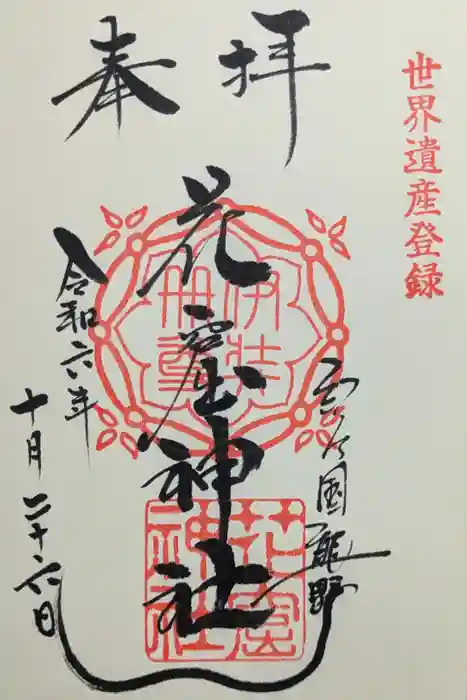 世界遺産登録
奉拝
花窟神社
国熊野
令和六年
十月二十六日
伊弉
冊尊
花窟
神社